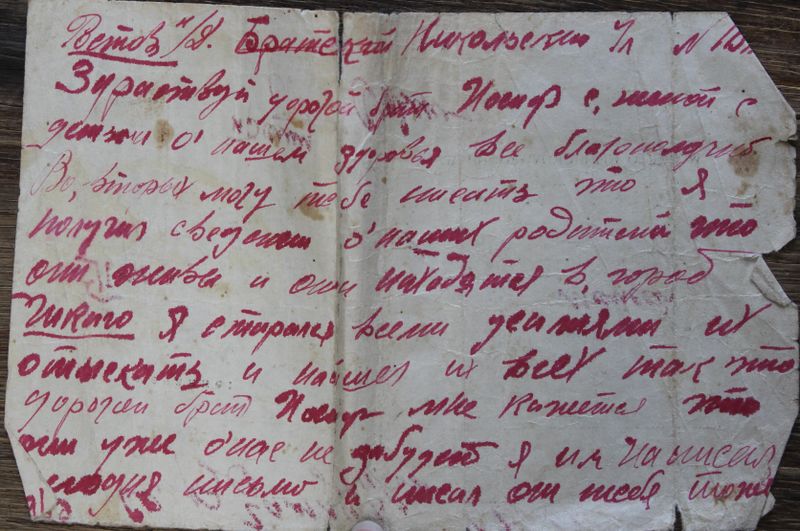 Ростов н/Д. Братский Никольскии Ул N 101
Здраствуй дорогой брат Иосиф с, женой с
детми о' нашем здоровья все благополучно
Во, вторых могу тебе писать что я
получил сведения о' наших родителй что
они живы и они находятся в, город
Чикаго я старался всеми усилями их
отыскать и нашел их всех так что
дорогой брат Иосиф мне кажется что
они уже о'нас не забудут я им написал
сегодня письмо и писал от тебя тоже